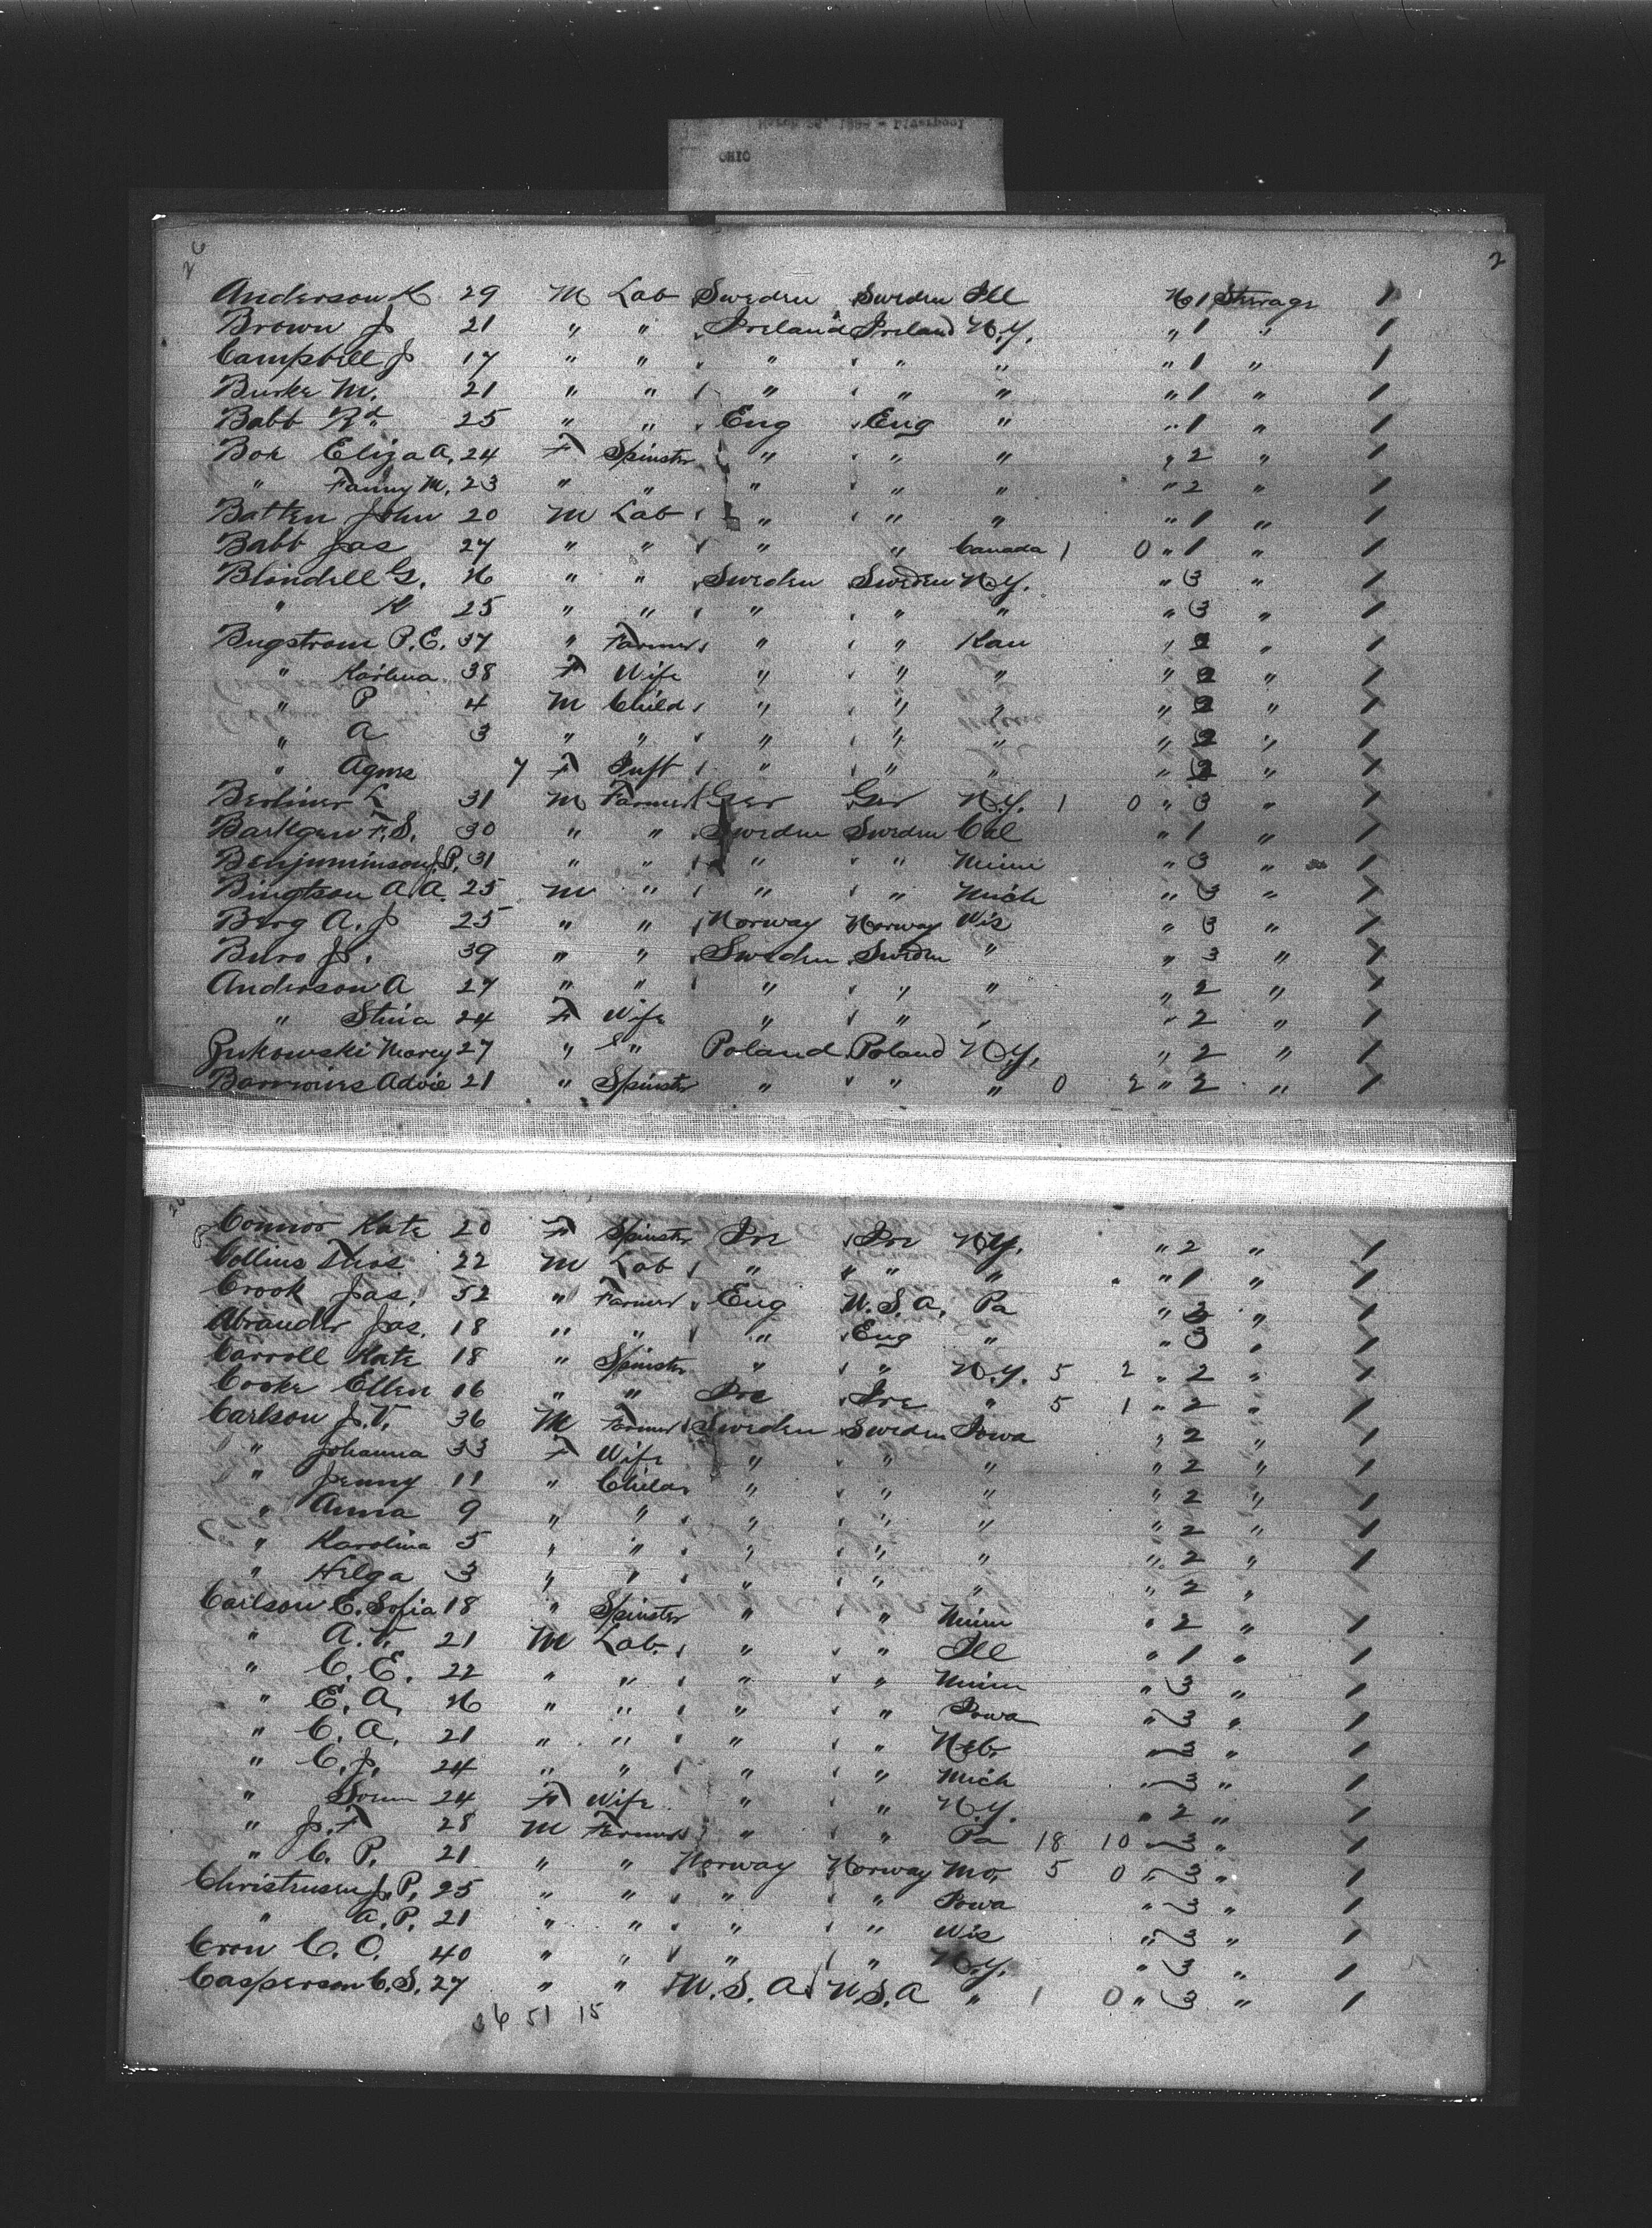 OHIO
26 2
Anderson K 29 M Lab Sweden Sweden Ill No 1 Steerage 1
Brown J 21 " " Ireland Ireland N.Y. " 1 " 1
Campbell J 17 " " " " " " 1 " 1
Burke M. 21 " " " " " " 1 " 1
Babb Rd 25 " " Eng Eng " " 1 " 1
Bok Eliza A. 24 F Spinster " " " " 2 " 1
" Fanny M. 23 " " " " " " 2 " 1
Batten John 20 M Lab " " " " 1 " 1
Babb Jas 27 " " " " Canada 1 0 " 1 " 1
Blondell G. 26 " " Sweden Sweden N.Y. " 3 " 1
" K 25 " " " " " " 3 " 1
Bugstrom P.E. 37 " Farmer " " Kan " 2 " 1
" Karlina 38 F Wife " " " " 2 " 1
" P 4 M Child " " " " 2 " 1
" A 3 " " " " " " 2 " 1
" Agnes 7 F Inft " " " " 2 " 1
Berliner L 31 M Farmer Ger Ger N.Y. 1 0 " 3 " 1
F.S. 30 " " Sweden Sweden Cal " 1 " 1
Benjuminson J.P. 31 " " " " Minn " 3 " 1
Bingtson A.A. 25 M " " " Mich " 3 " 1
Berg A.J 25 " " Norway Norway Wis " 3 " 1
Buro J. 39 " " Sweden Sweden " " 3 " 1
Anderson A 27 " " " " " " 2 " 1
" Stina 24 F Wife " " " " 2 " 1
Zukowski Marcy 27 " " Poland Poland N.Y. " 2 " 1
Advie 21 " Spinster " " " 0 2 " 2 " 1
Connor Kate 20 F Spinster Ire Ire N.Y. " 2 " 1
Collins Thos. 22 M Lab " " " " 1 " 1
Crook Jas. 32 " Farmer Eng U.S.A. Pa " 3 " 1
Jas. 18 " " " Eng " " 3 " 1
Carroll Kate 18 " Spinster " " N.Y. 5 2 " 2 " 1
Cooke Ellen 16 " " Ire Ire " 5 1 " 2 " 1
Carlson J.V. 36 M Farmer Sweden Sweden Iowa " 2 " 1
" Johanna 33 F Wife " " " " 2 " 1
" Jenny 11 " Child " " " " 2 " 1
" Anna 9 " " " " " " 2 " 1
" Karolina 5 " " " " " " 2 " 1
" Hilga 3 " " " " " " 2 " 1
Carlson E. Sofia 18 " Spinster " " Minn " 2 " 1
" A.V. 21 M Lab. " " Ill " 1 " 1
" C.E. 22 " " " " Minn " 3 " 1
" E.A. 26 " " " " Iowa " 3 " 1
" C.A. 21 " " " " Neb. " 3 " 1
" C.J. 24 " " " " Mich " 3 " 1
" 24 F Wife " " N.Y. " 2 " 1
" J.F 28 M Farmer " " Pa 18 10 " 3 " 1
" C.P. 21 " " Norway Norway Mo. 5 0 " 3 " 1
Christensen J.P. 25 " " " " Iowa " 3 " 1
" A.P. 21 " " " " Wis " 3 " 1
Cron C.O. 40 " " " " N.Y. " 3 " 1
Casperson C.S. 27 " " U.S.A U.S.A " 1 0 " 3 " 1
36 51 15